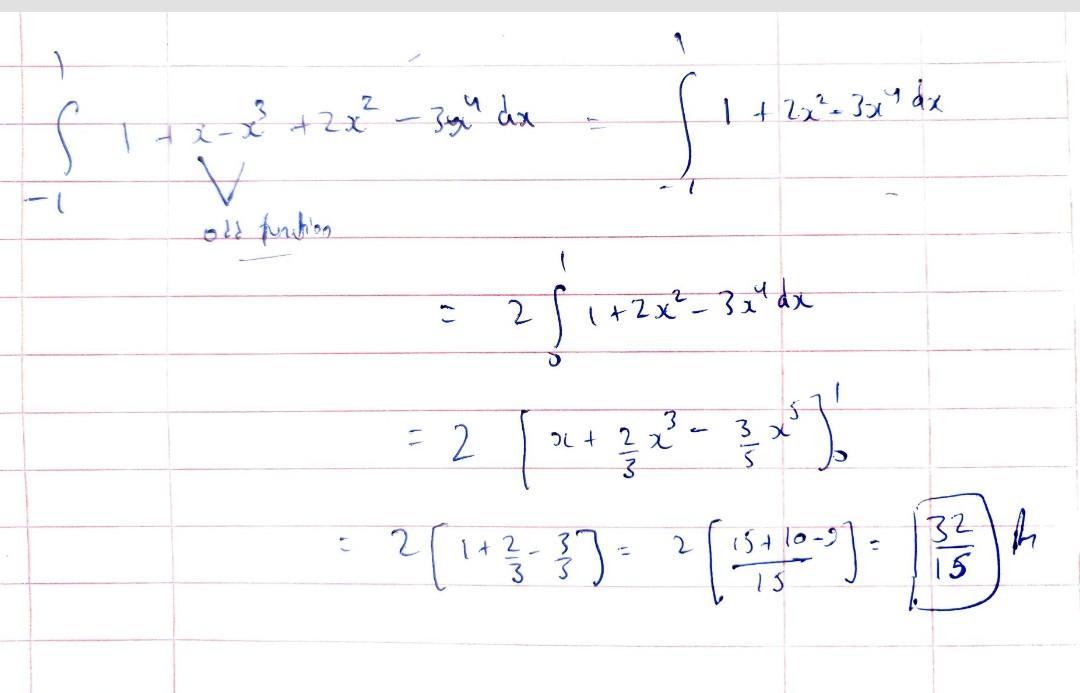 ∫_{-1}^{1} 1 + x - x³ + 2x² - 3x⁴ dx = ∫_{-1}^{1} 1 + 2x² - 3x⁴ dx
odd function
= 2 ∫_{0}^{1} 1 + 2x² - 3x⁴ dx
= 2 [x + 2/3 x³ - 3/5 x⁵]_{0}^{1}
= 2 [1 + 2/3 - 3/5] = 2 [(15 + 10 - 9)/15] = 32/15